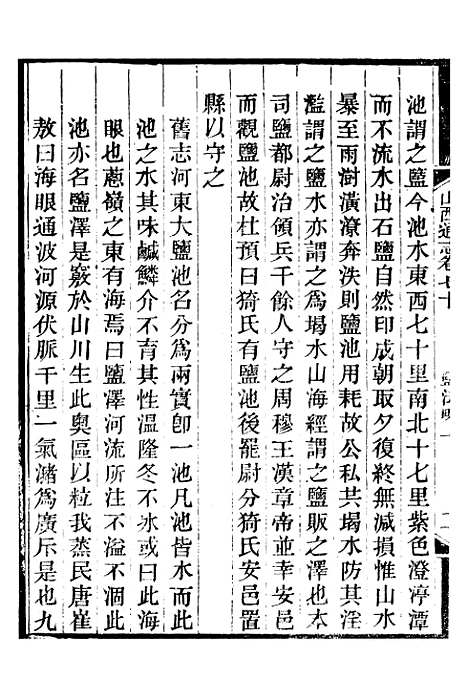 山西通志卷七十　鹽法略一
池謂之鹽今池水東西七十里南北十七里紫色澄渟潭
而不流水出石鹽自然印成朝取夕復終無減損惟山水
暴至雨澍潢潦奔泆則鹽池用耗故公私共堨水防其淫
濫謂之鹽水亦謂之爲堨水山海經謂之鹽販之澤也本
司鹽都尉治領兵千餘人守之周穆王漢章帝並幸安邑
而觀鹽池故杜預曰猗氏有鹽池後罷尉分猗氏安邑置
縣以守之
舊志河東大鹽池名分爲兩實卽一池凡池皆水而此
池之水其味鹹鱗介不育其性溫隆冬不冰或曰此海
眼也蔥嶺之東有海焉曰鹽澤河流所注不溢不涸此
池亦名鹽澤是竅於山川生此奧區以粒我蒸民唐崔
敖曰海眼通波河源伏脈千里一氣潴爲廣斥是也九